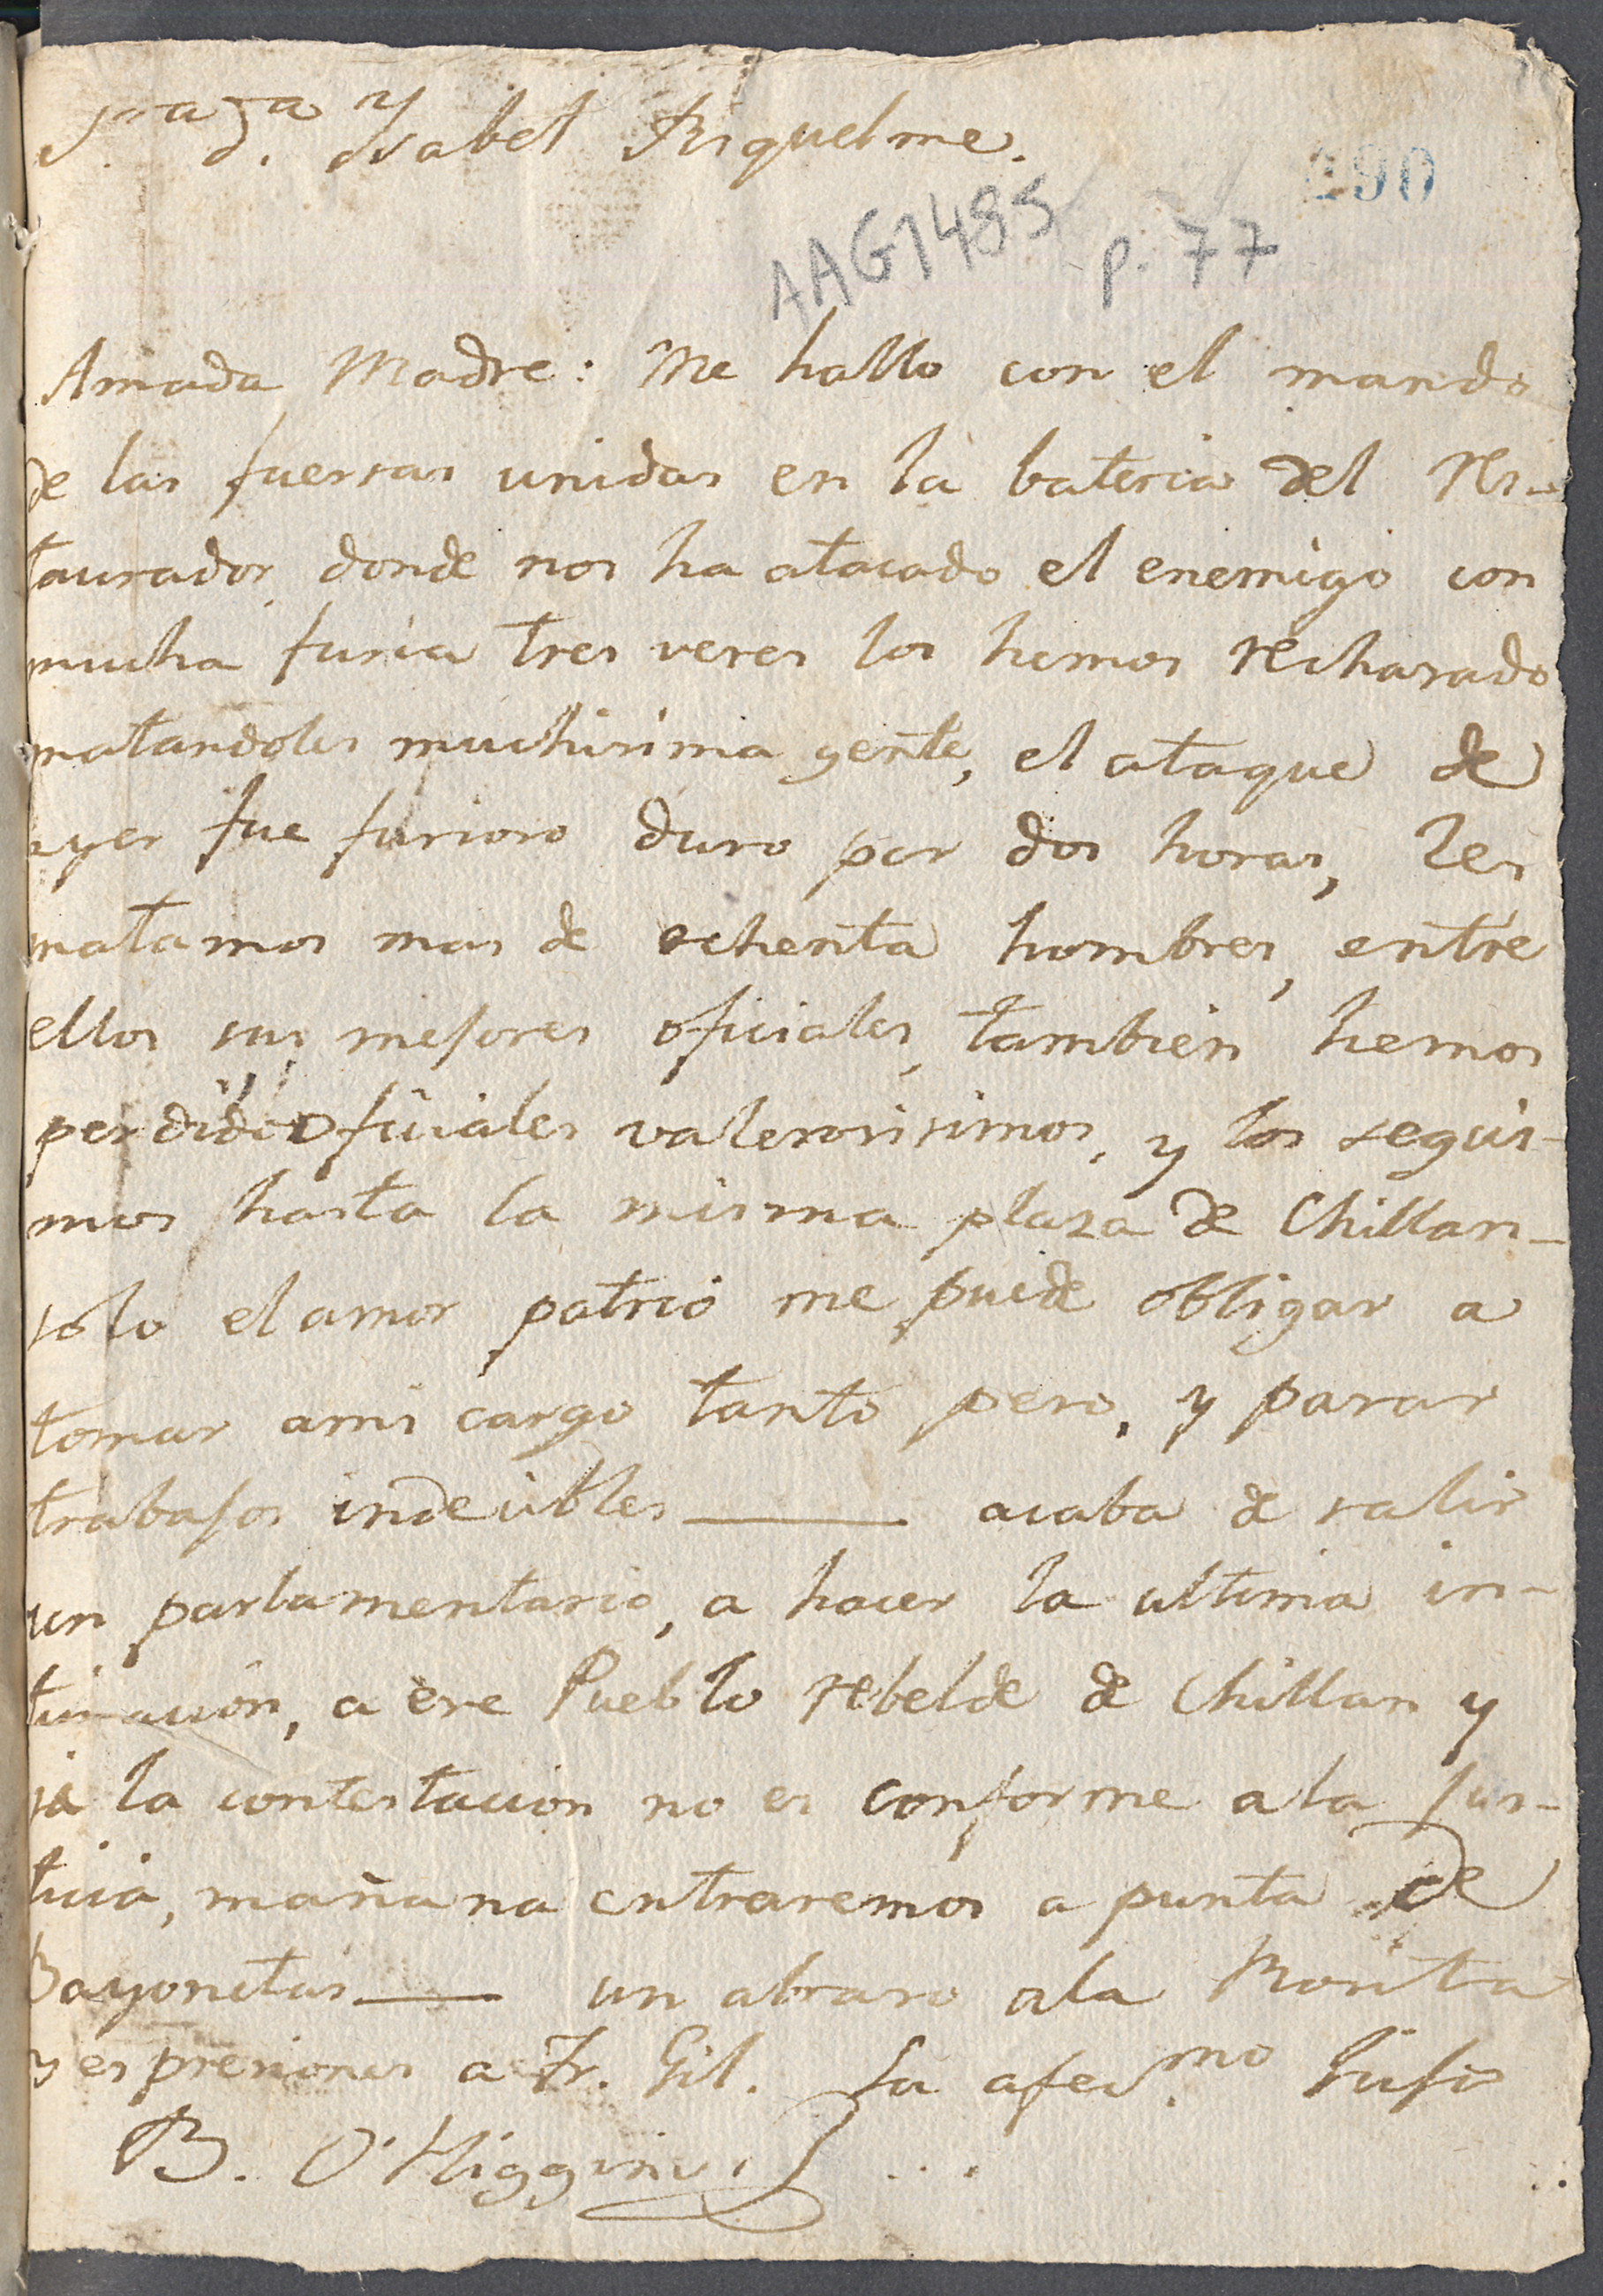 S.ra D.a Ysabel Riquelme.
290
AAG1485 p. 77
Amada Madre: Me hallo con el mando
de las fuersas unidas en la bateria del Res-
taurador donde nos ha atacado el enemigo con
mucha furia tres veses los hemos rechasado
matandoles muchisima gente, el ataque de
ayer fue furioso duro por dos horas, les
matamos mas de ochenta hombres, entre
ellos sus mejores oficiales, tambien hemos
perdido oficiales valerosisimos, y los segui-
mos hasta la misma plaza de Chillan_
solo el amor patrio me puede obligar a
tomar ami cargo tanto peso, y pasar
trabajos indecibles ——— acaba de salir
un parlamentario, a hacer la ultima in-
timacion, a ese Pueblo rebelde de Chillan y
si la contestacion no es conforme ala Jus-
ticia, mañana entraremos a punta de
Bayonetas —— un abraso ala Rosita
y espresiones a Fr. Gil. Su afec.mo hijo
B. O'Higgins